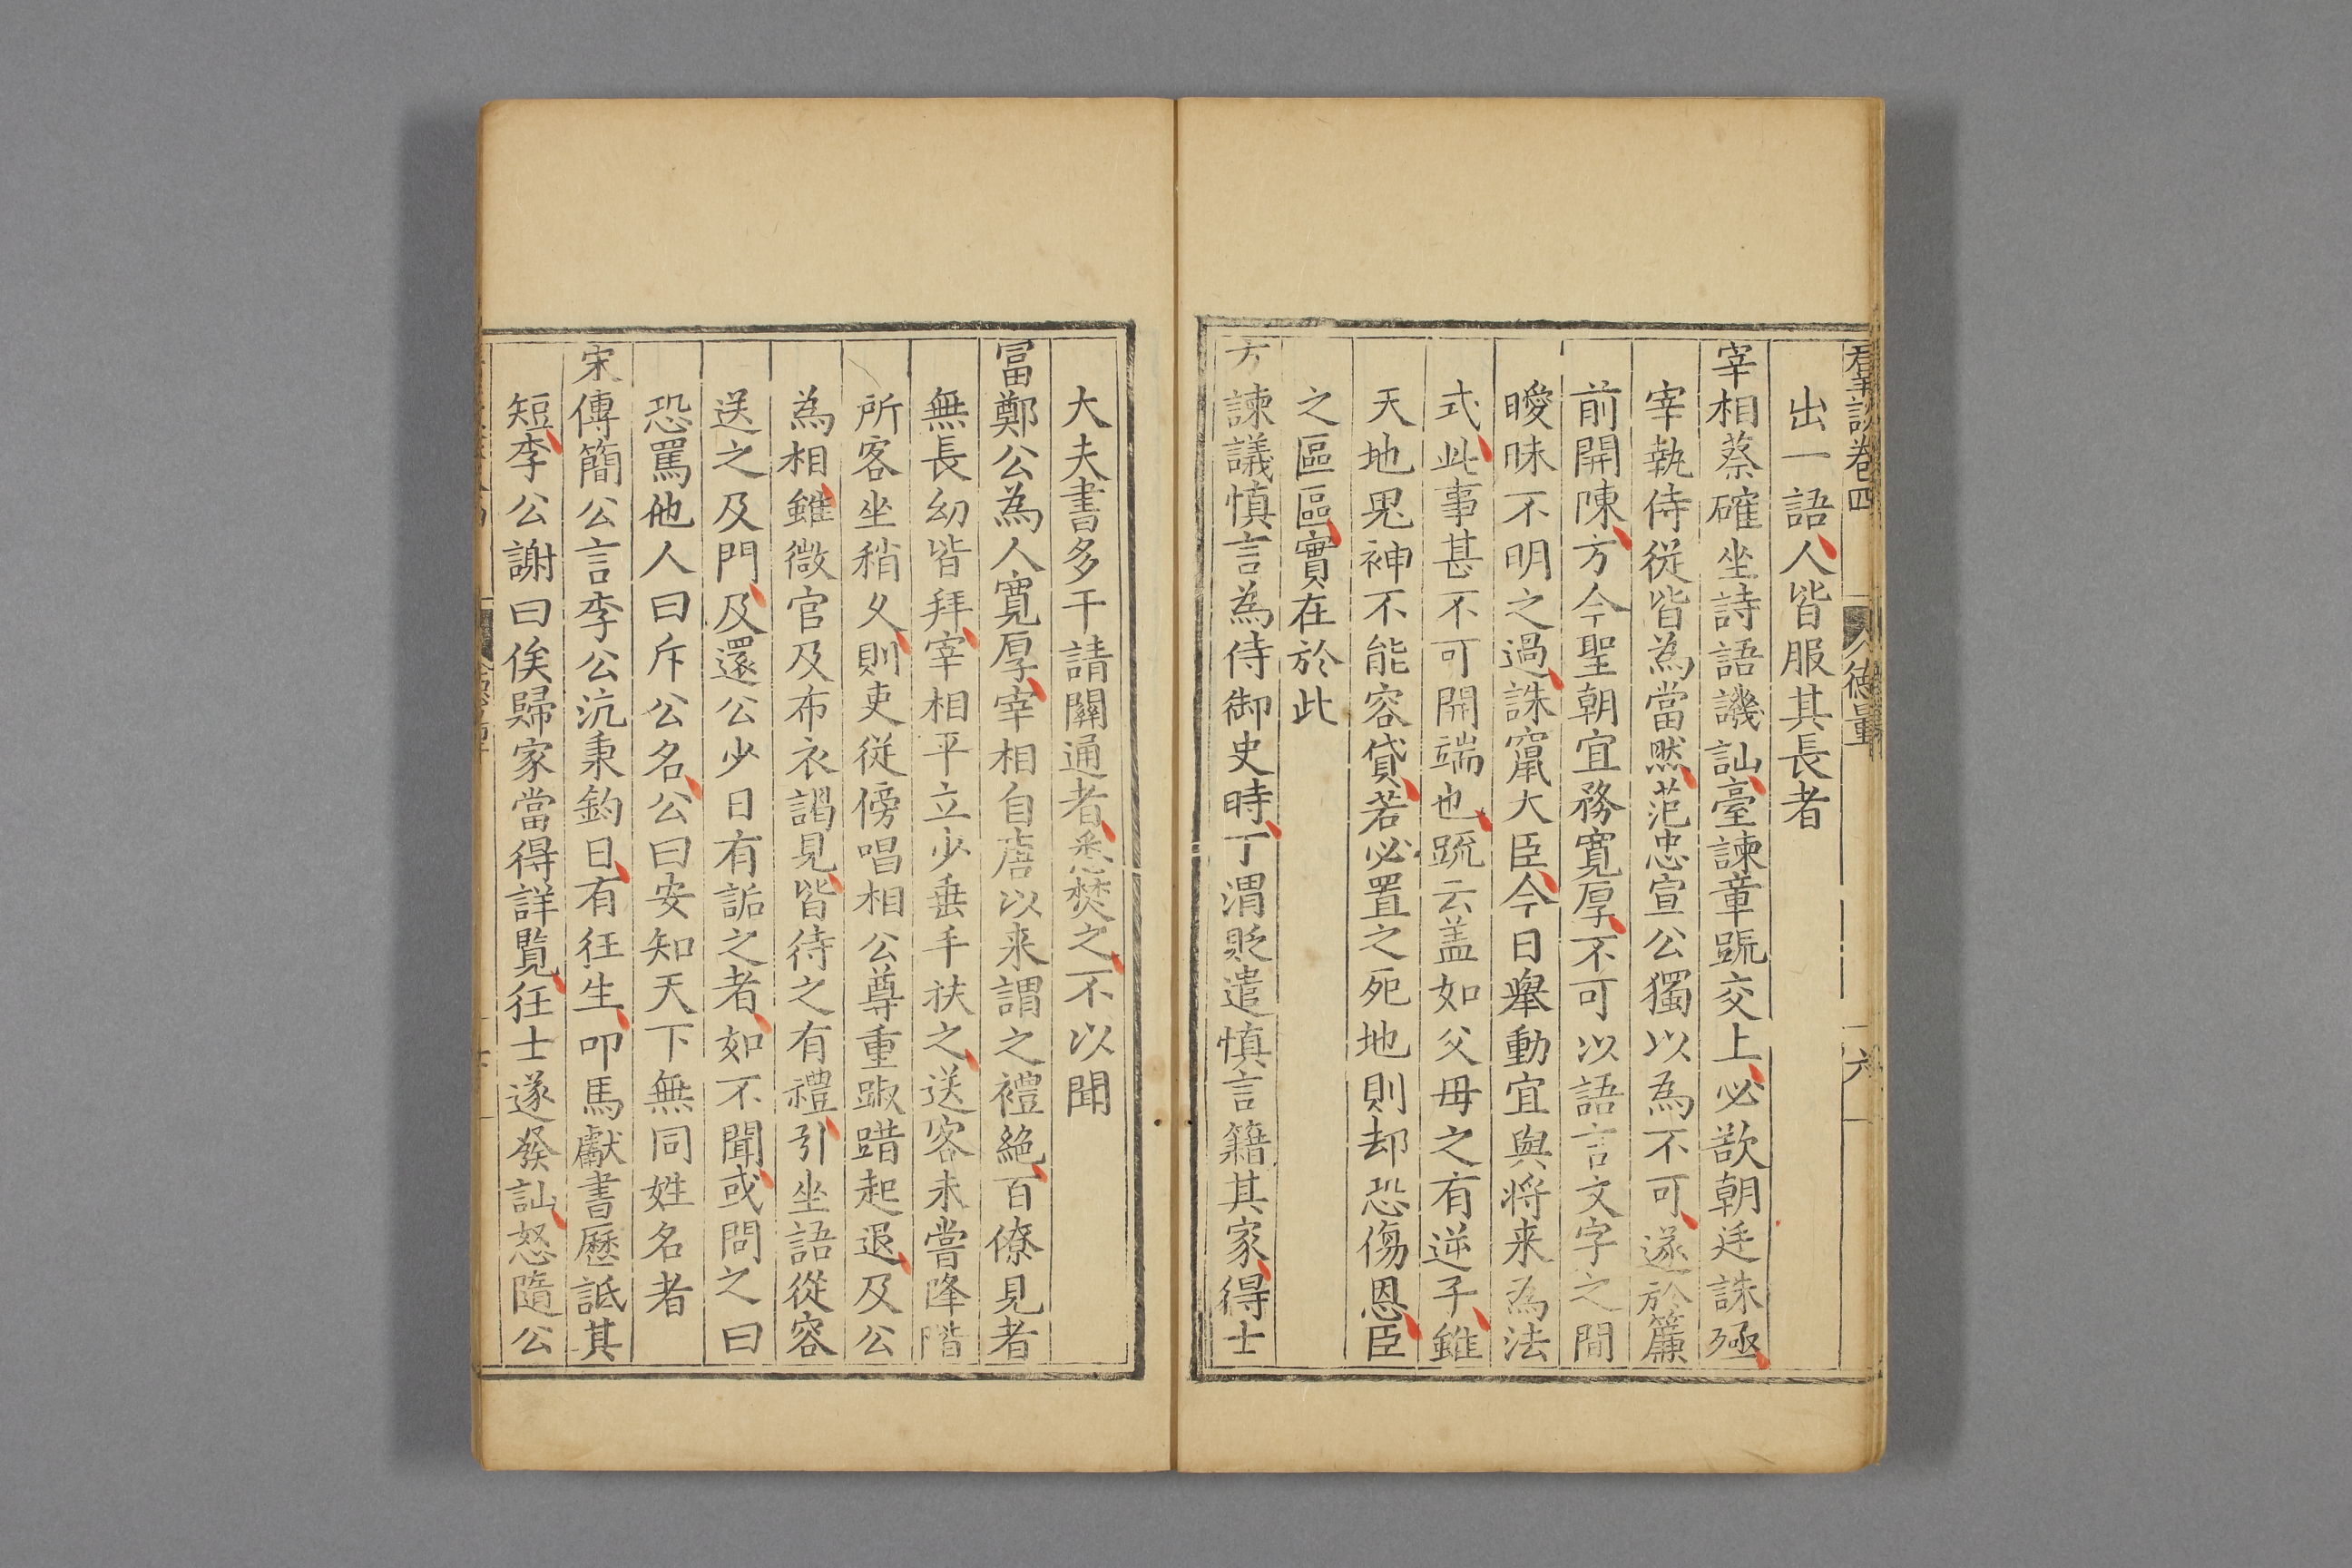 羣談卷四 德量 六
出一語人皆服其長者
宰相蔡確坐詩語譏訕臺諫章䟽交上必欲朝廷誅殛
宰執侍從皆為當然范忠宣公獨以為不可遂於簾
前開陳方今聖朝宜務寬厚不可以語言文字之間
曖昧不明之過誅竄大臣今日舉動宜與将来為法
式此事甚不可開端也䟽云盖如父母之有逆子雖
天地鬼神不能容貸若必置之死地則却恐傷恩臣
之區區實在於此
方諫議慎言為侍御史時丁渭貶遣慎言籍其家得士
大夫書多干請關通者悉焚之不以聞
冨鄭公為人寬厚宰相自唐以来謂之禮絶百僚見者
無長幼皆拜宰相平立少垂手扶之送客未嘗降階
所客坐稍久則吏從傍唱相公尊重踧踖起退及公
為相雖微官及布衣謁見皆待之有禮引坐語從容
送之及門及還公少日有詬之者如不聞或問之曰
恐罵他人曰斥公名公曰安知天下無同姓名者
宋傳簡公言李公沆秉鈞日有狂生叩馬獻書歷詆其
短李公謝曰俟歸家當得詳覽狂士遂發訕怒隨公